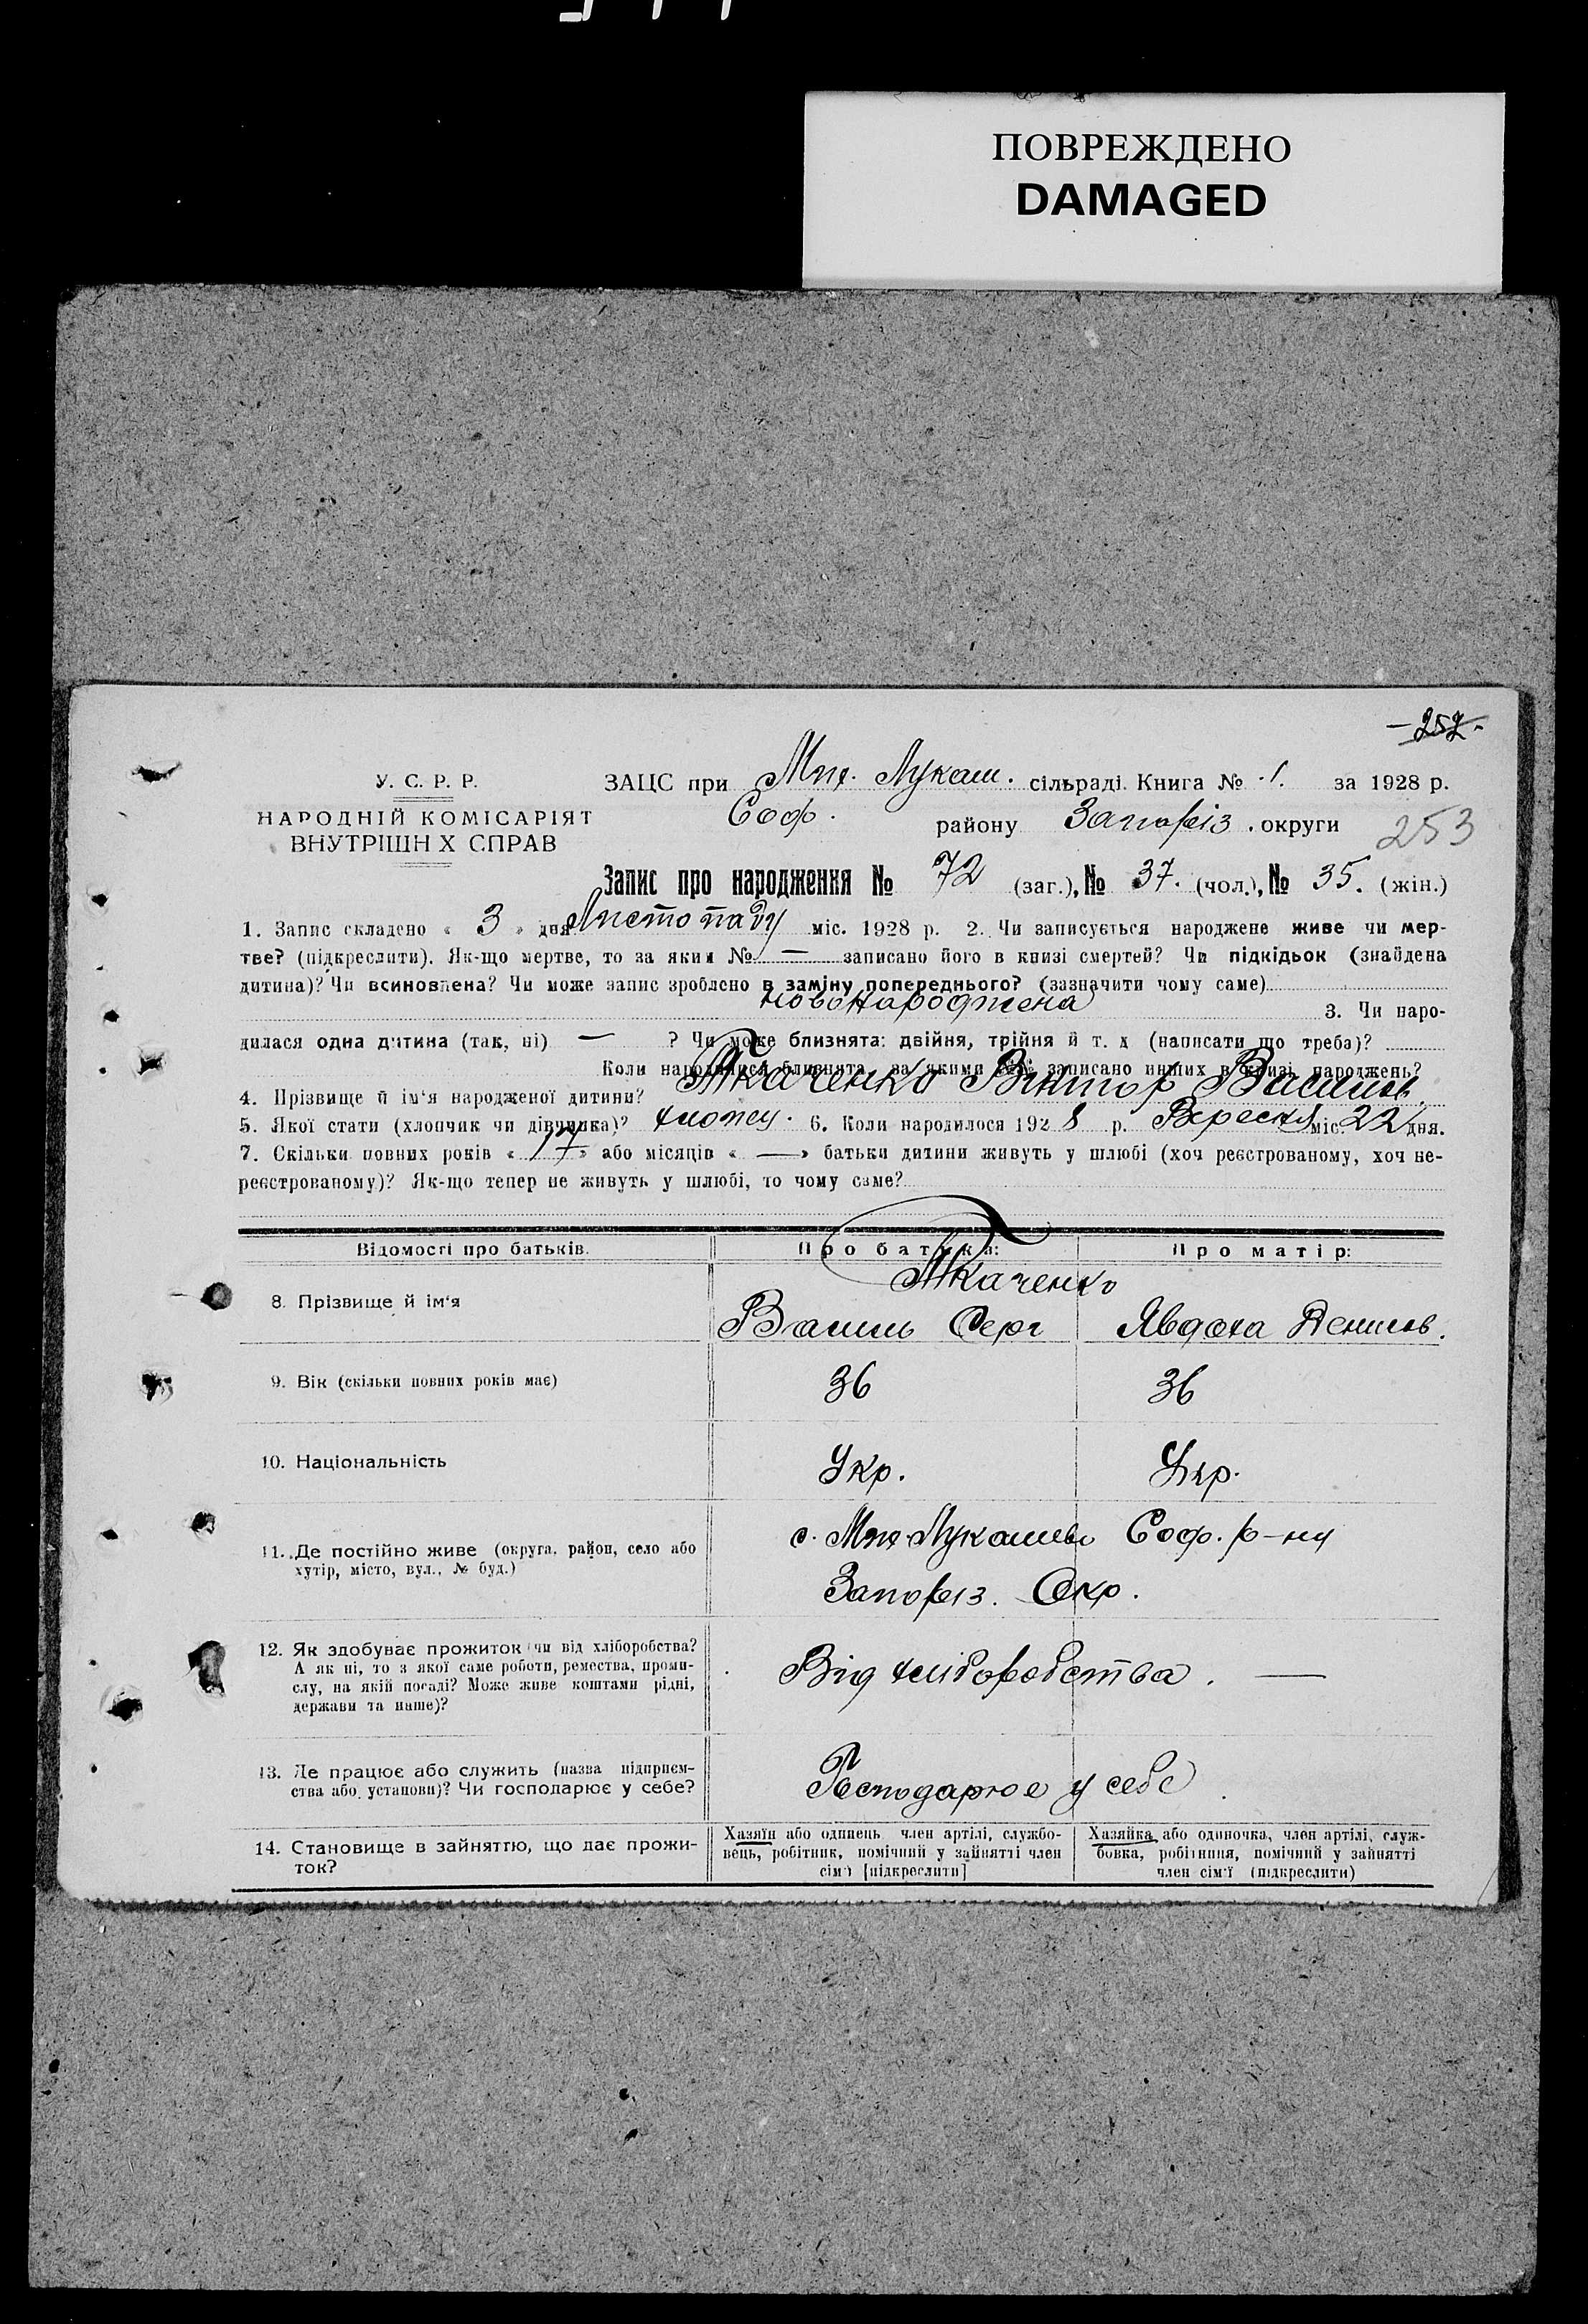 ПОВРЕЖДЕНО
DAMAGED
- 252 -
У. С. Р. Р.
НАРОДНІЙ КОМІСАРІЯТ
ВНУТРІШН Х СПРАВ
ЗАЦС при Мих. Лукаш. сільраді. Книга № 1. за 1928 р.
Соф. району Запоріз. округи
253
Запис про народження № 72 (заг.), № 37. (чол.), № 35. (жін.)
1. Запис складено « 3 » дня Листопаду міс. 1928 р. 2. Чи записується народжене живе чи мер-
тве? (підкреслити). Як-що мертве, то за яким № — записано його в книзі смертей? Чи підкідьок (знайдена
дитина)? Чи всиновлена? Чи може запис зроблено в заміну попереднього? (зазначити чому саме)
новонароджена 3. Чи наро-
дилася одна дитина (так, ні) — ? Чи може близнята: двійня, трійня й т. д (написати що треба)?
Коли народилися близнята, за якими №№ записано инших в книзі народжень?
4. Прізвище й ім'я народженої дитини? Ткаченко Віктор Васильов.
5. Якої стати (хлопчик чи дівчинка)? хлопец. 6. Коли народилося 1928 р. Вересня міс. 22 дня.
7. Скільки повних років « 17 » або місяців « — » батьки дитини живуть у шлюбі (хоч реєстрованому, хоч не-
реєстрованому)? Як-що тепер не живуть у шлюбі, то чому саме?
Відомості про батьків. Про батька: Про матір:
Ткаченко
8. Прізвище й ім'я Василь Серг Явдоха Денисов.
9. Вік (скільки повних років має) 36 36
10. Національність Укр. Укр.
с. Мих-Лукашеве Соф. р-ну
11. Де постійно живе (округа, район, село або
хутір, місто, вул., № буд.)
Запоріз. Окр.
12. Як здобуває прожиток (чи від хліборобства?
А як ні, то з якої саме роботи, ремества, проми-
слу, на якій посаді? Може живе коштами рідні,
держави та инше)?
Від хліборобства. —
13. Де працює або служить (назва підприєм-
ства або установи)? Чи господарює у себе?
Господарює у себе
14. Становище в зайняттю, що дає прожи-
ток?
Хазяїн або одинець, член артілі, службо-
вець, робітник, помічний у зайнятті член
сім'ї [підкреслити]
Хазяйка або одиночка, член артілі, служ-
бовка, робітниця, помічний у зайнятті
член сім'ї (підкреслити)